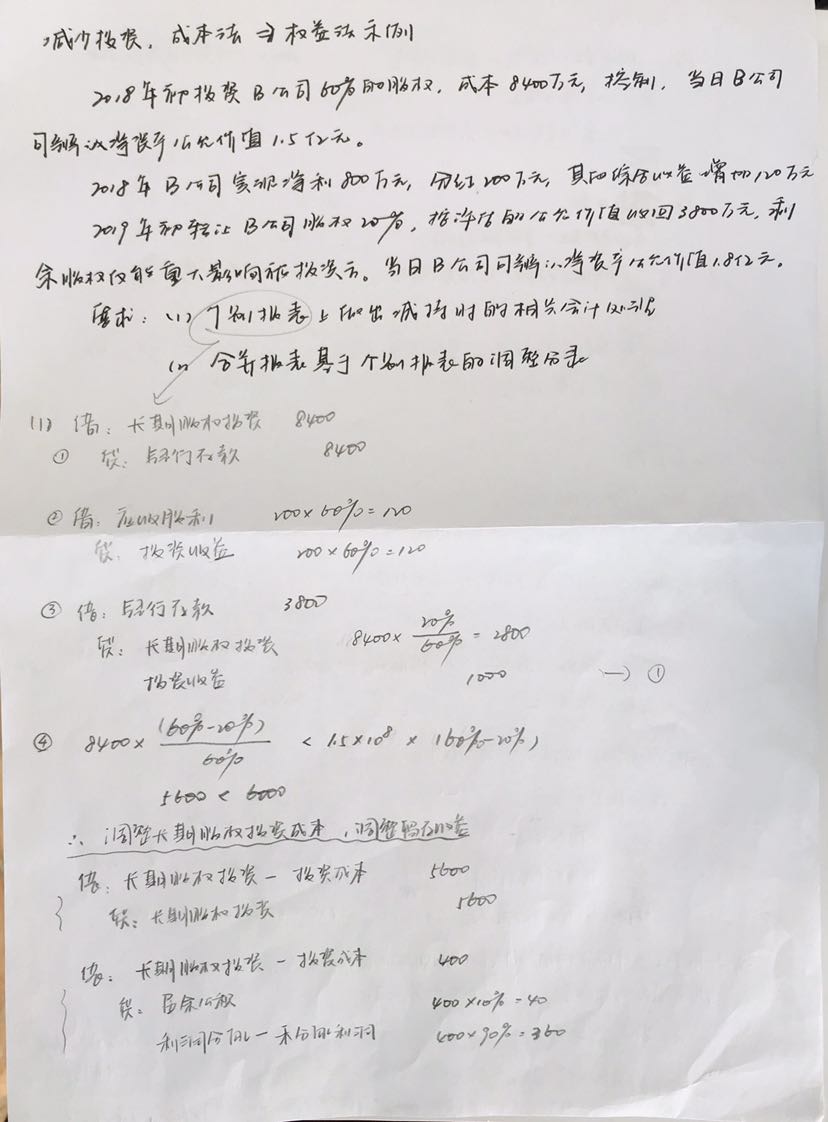 减少投资,成本法⇒权益法示例
2018年初投资B公司60%的股权,成本8400万元,控制,当日B公司
可辨认净资产公允价值1.5亿元。
2018年B公司实现净利800万元,分红200万元,其他综合收益增加120万元
2019年初转让B公司股权20%,按评估的公允价值收回3800万元,剩
余股权仅能重大影响被投资方。当日B公司可辨认净资产公允价值1.8亿元。
要求:(1) 个别报表上做出减持时的相关会计处理
(2) 合并报表基于个别报表的调整分录
(1) 借:长期股权投资 8400
① 贷:银行存款 8400
② 借:应收股利 200×60%=120
贷:投资收益 200×60%=120
③ 借:银行存款 3800
贷:长期股权投资 8400×20%/60%=2800
投资收益 1000 ①
④ 8400×(60%-20%)/60% < 1.5×10⁸×(60%-20%)
5600 < 6000
∴ 调整长期股权投资成本,调整留存收益
借:长期股权投资-投资成本 5600
贷:长期股权投资 5600
借:长期股权投资-投资成本 400
贷:盈余公积 400×10%=40
利润分配-未分配利润 400×90%=360